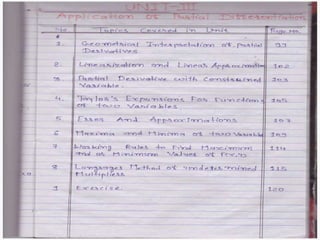 UNIT-III
Application of Partial Differentiation
No Topics Covered in Unit Page No.
1. Geometrical Interpretation of Partial 99
Derivatives
2. Linearization and Linear Approximation 102
3. Partial Derivative with Constrained 103
Variable.
4. Taylor's Expansions For Functions 105
of two Variables
5 Errors And Approximations 107
6 Maxima and Minima of two Variable 109
7 Working Rules to Find Maximum 114
and or Minimum Values of
8 Method of undetermined 115
Multipliers
9 Exercise. 120